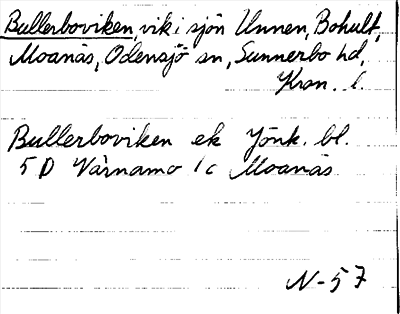 Bullerboviken, vik i sjön Unnen, Bohult,
Moanäs, Odensjö sn, Sunnerbo hd,
Kron. l.
Bullerboviken ek Jönk. bl.
5 D Värnamo 1c Moanäs
N-57